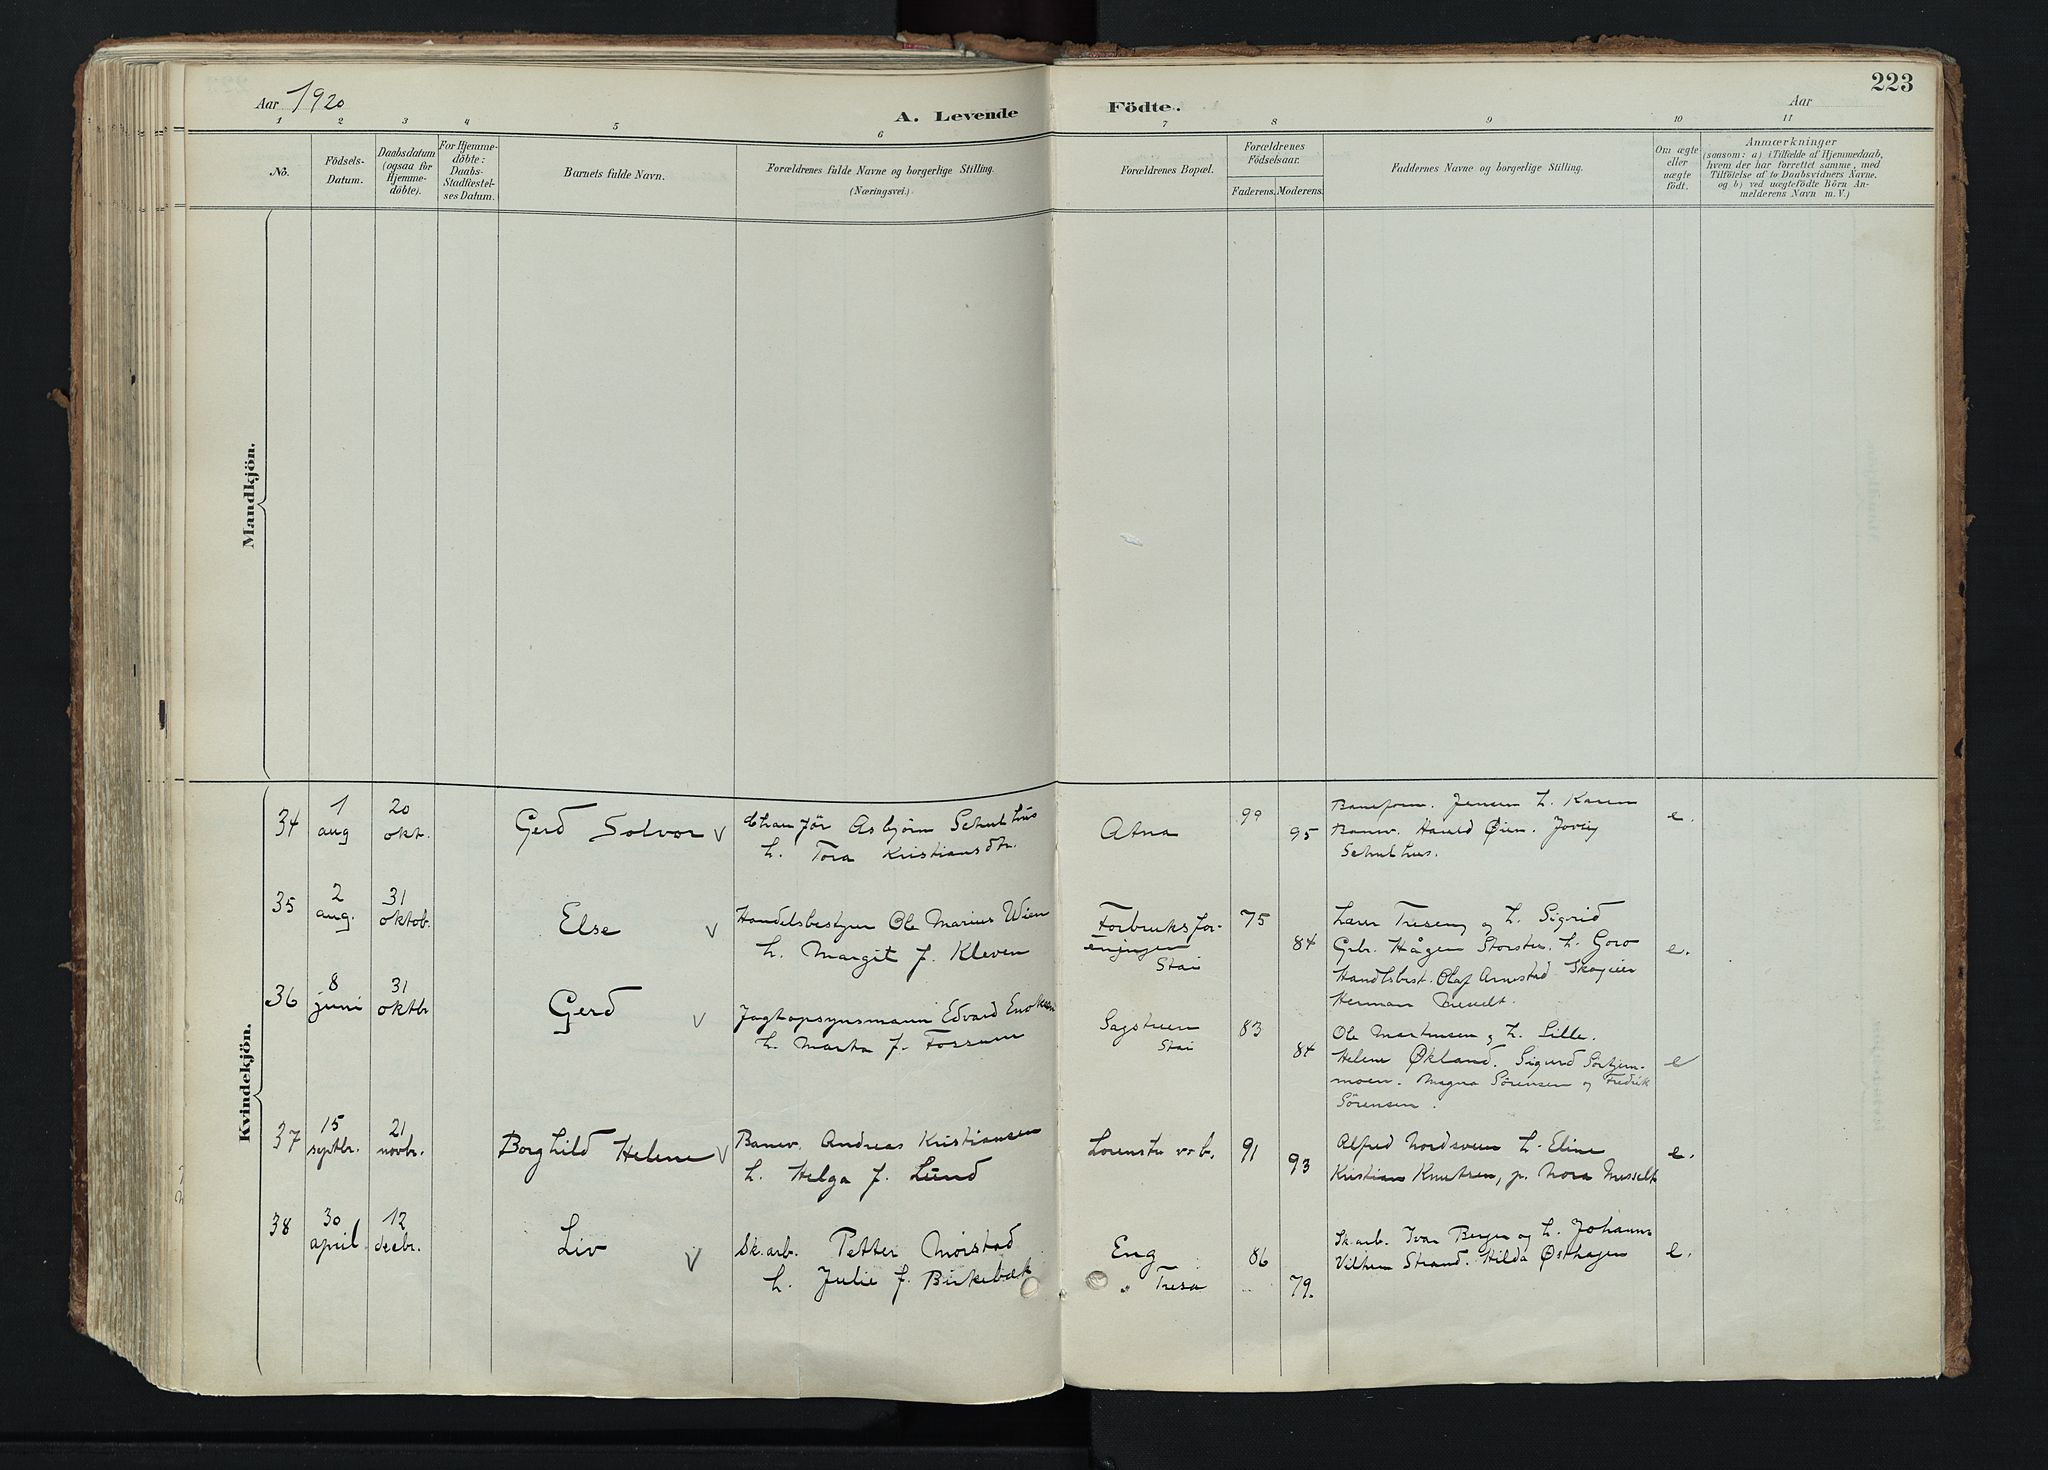 223
Aar 1920
A. Levende Födte.
Aar
1 2 3 4 5 6 7 8 9 10 11
No.
Födsels-
Datum.
Daabsdatum
(ogsaa for
Hjemme-
döbte).
For Hjemme-
döbte:
Daabs-
Stadfæstel-
ses Datum.
Barnets fulde Navn.
Forældrenes fulde Navne og borgerlige Stilling.
(Næringsvei.)
Forældrenes Bopæl.
Forældrenes
Födselsaar.
Faderens. Moderens.
Faddernes Navne og borgerlige Stilling.
Om ægte
eller
uægte
født.
Anmærkninger
(saasom: a) i Tilfælde af Hjemmedaab,
hvem der har forrettet samme, med
Tilföielse af to Daabsvidners Navne.
og b) ved uægtefödte Börn An-
melderens Navn m. V.)
Mandkjön.
Kvindekjön.
34
1
aug
20
okt.
Gerd Solvor v
Asbjörn Schulhus
h. Tora Kristiansdtr.
Atna
99
95
Baneform. Jensen h. Karen
Banev. Harald Øien.
Schulhus.
e.
35
2
aug.
31
oktob.
Else v
Handelsbestyrer Ole Marius Wien
h. Margit f. Kleven
Forbruksfor-
eningen
Stai
75
84
Lærer Treseng og h. Sigrid
Grbr. Hågen Storstu. h. Goro
Handlsbest. Olaf Arnestad. Skogeier
Herman
e.
36
8
juni
31
oktbr
Gerd v
Jagtopsynsmann Edvard Enoksen
h. Marta f. Fossum
Sagstuen
Stai
83
84
Ole Martinsen og h. Lille.
Helene Økland. Sigurd
moen. Magna Sörensen og Fredrik
Sörensen.
e
37
15
septbr.
21
novbr.
Borghild Helene v
Banev. Andreas Kristiansen
h. Helga f. Lund
Lorenstu
91
93
Alfred Nordsveen h. Eline
Kristian Knutsen, p. Nora Messelt
e.
38
30
april
12
decbr.
Liv v
Sk.arb. Petter Mörstad
h. Julie f. Birkebæk
Eng
" Tresa
86
79.
Sk.arb. Ivar Berger og h. Johanne
Vilhem Strand. Hilda Østhagen
e.